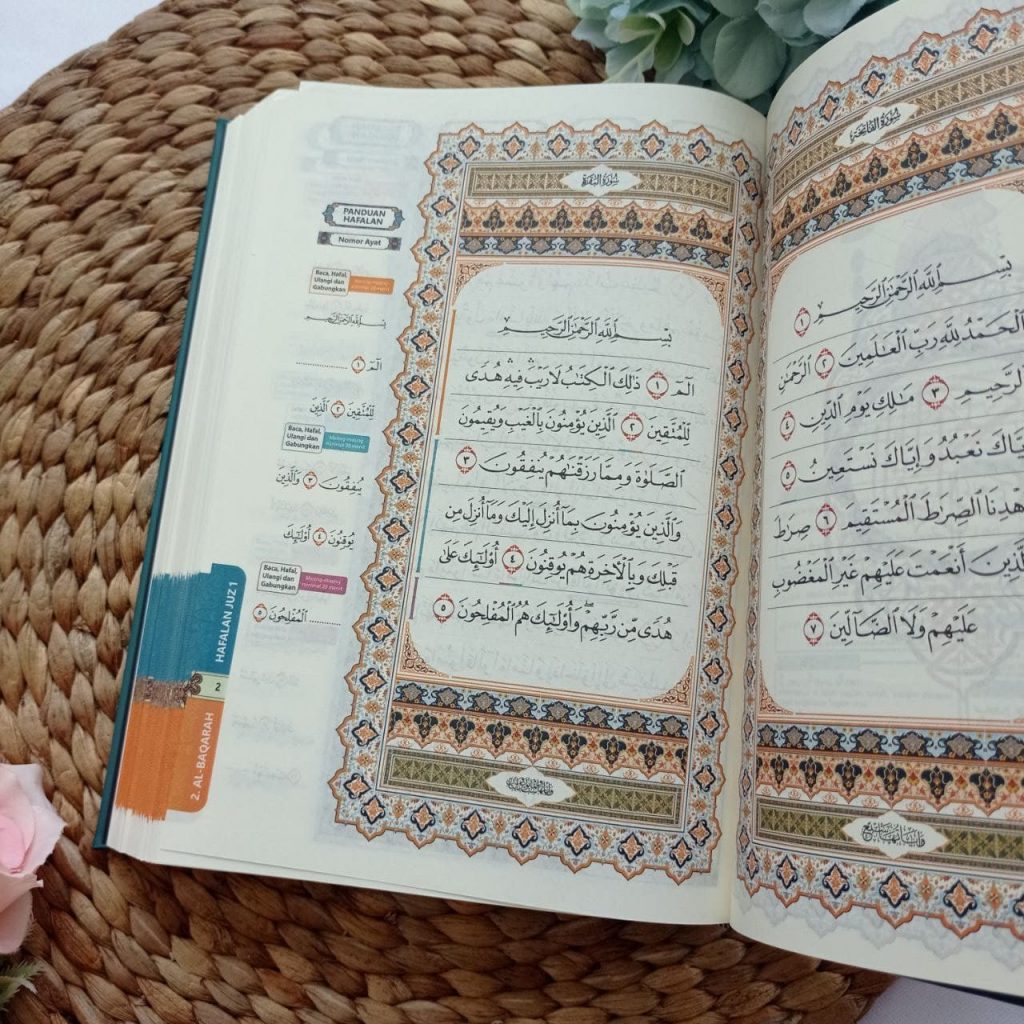 سُورَةُ الْفَاتِحَةِ
بِسْمِ اللَّهِ الرَّحْمَٰنِ الرَّحِيمِ ١
الْحَمْدُ لِلَّهِ رَبِّ الْعَٰلَمِينَ ٢ الرَّحْمَٰنِ
الرَّحِيمِ ٣ مَٰلِكِ يَوْمِ الدِّينِ ٤
يَّاكَ نَعْبُدُ وَإِيَّاكَ نَسْتَعِينُ ٥
هْدِنَا الصِّرَاطَ الْمُسْتَقِيمَ ٦ صِرَاطَ
لَّذِينَ أَنْعَمْتَ عَلَيْهِمْ غَيْرِ الْمَغْضُوبِ
عَلَيْهِمْ وَلَا الضَّآلِّينَ ٧
سُورَةُ الْبَقَرَةِ
بِسْمِ اللَّهِ الرَّحْمَٰنِ الرَّحِيمِ
الٓمٓ ١ ذَٰلِكَ الْكِتَٰبُ لَا رَيْبَ ۛ فِيهِ ۛ هُدًى
لِّلْمُتَّقِينَ ٢ الَّذِينَ يُؤْمِنُونَ بِالْغَيْبِ وَيُقِيمُونَ
الصَّلَوٰةَ وَمِمَّا رَزَقْنَٰهُمْ يُنفِقُونَ ٣
وَالَّذِينَ يُؤْمِنُونَ بِمَآ أُنزِلَ إِلَيْكَ وَمَآ أُنزِلَ مِن
قَبْلِكَ وَبِالْءَاخِرَةِ هُمْ يُوقِنُونَ ٤ أُو۟لَٰٓئِكَ عَلَىٰ
هُدًى مِّن رَّبِّهِمْ ۖ وَأُو۟لَٰٓئِكَ هُمُ الْمُفْلِحُونَ ٥
PANDUAN
HAFALAN
Nomor Ayat
Baca, Hafal,
Ulangi dan
Gabungkan
Masing-masing
minimal 20 menit
بِسْمِ اللَّهِ الرَّحْمَٰنِ الرَّحِيمِ
الٓمٓ ١ ............
لِّلْمُتَّقِينَ ٢ الَّذِينَ
Baca, Hafal,
Ulangi dan
Gabungkan
Masing-masing
minimal 20 menit
يُنفِقُونَ ٣ وَالَّذِينَ
يُوقِنُونَ ٤ أُو۟لَٰٓئِكَ
Baca, Hafal,
Ulangi dan
Gabungkan
Masing-masing
minimal 20 menit
............ الْمُفْلِحُونَ ٥
HAFALAN JUZ 1
2
2. AL-BAQARAH